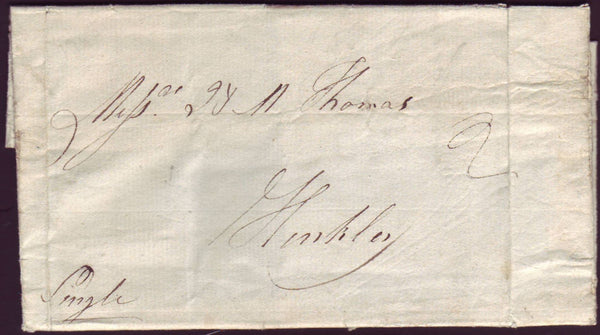 Messrs J & M Thomas
2
Hinkley
Single